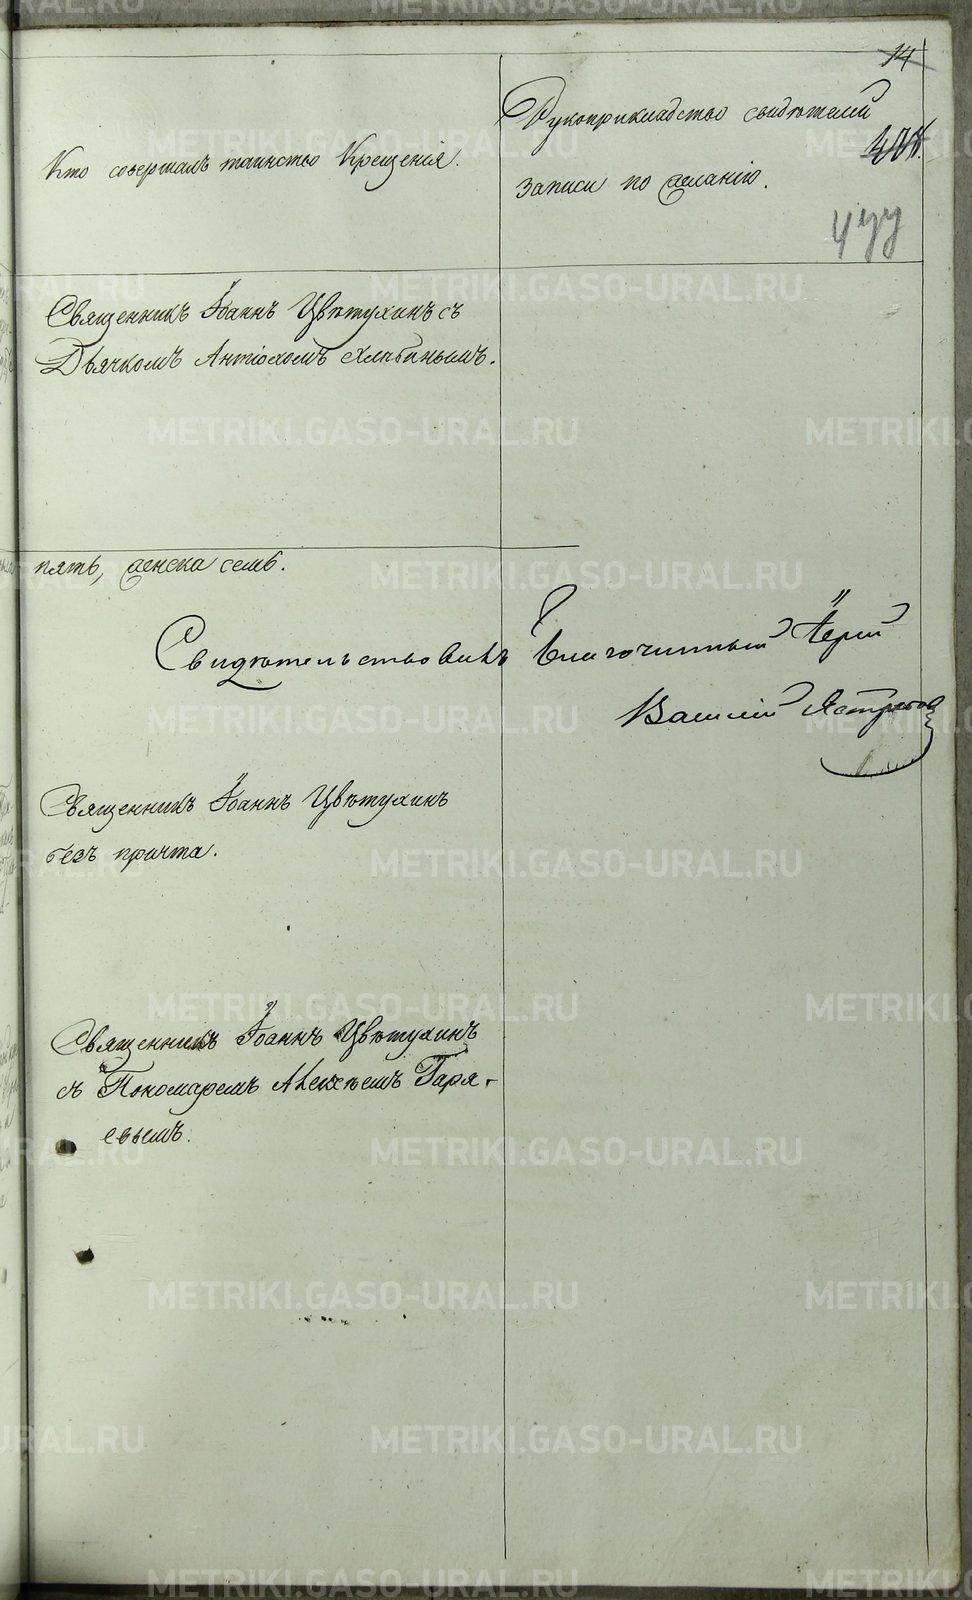 14
Кто совершалъ таинство Крещенія.
Рукоприкладство свидѣтелей
записи по желанію.
477
Священникъ Іоаннъ Цвѣтухинъ съ
Дьячкомъ Антіохомъ Хлыбинымъ.
пять, женска семь.
Свидѣтельствовалъ Благочинный Іерей
Василій Ястребовъ
Священникъ Іоаннъ Цвѣтухинъ
безъ причта.
Священникъ Іоаннъ Цвѣтухинъ
съ Пономаремъ Алексѣемъ Горя-
евымъ.
METRIKI.GASO-URAL.RU